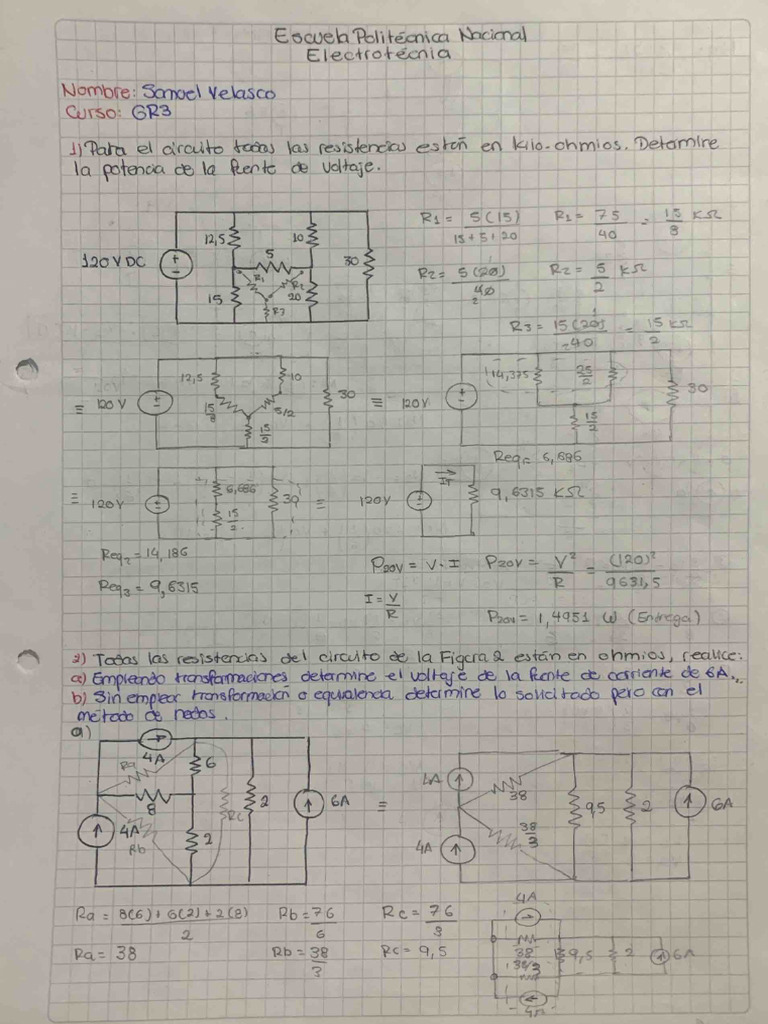 Escuela Politécnica Nacional
Electrotécnia
Nombre: Samuel Velasco
Curso: GR3
1) Para el circuito todas las resistencias estan en kilo-ohmios. Determine
la potencia de la fuente de voltaje.
120V DC
12,5
10
5
30
15
R1
R2
20
R3
R1 = 5(15) / 15+5+20
R1 = 75/40 = 15/8 KΩ
R2 = 5(20) / 40
2
R2 = 5/2 KΩ
R3 = 15(20) / 40 = 15/2 KΩ
≡ 120V
12,5
10
15/8
5/2
15/2
30
≡ 120V
14,375
25/2
15/2
30
Req1 = 6,686
≡ 120V
6,686
15/2
30
≡ 120V
IT
9,6315 KΩ
Req2 = 14,186
Req3 = 9,6315
P20V = V · I
P20V = V²/R = (120)²/9631,5
I = V/R
P20V = 1,4951 W (Entrega)
2) Todas las resistencias del circuito de la Figura 2 están en ohmios, realice:
a) Empleando transformaciones determine el voltaje de la fuente de corriente de 6A.
b) Sin emplear transformación o equivalencia determine lo solicitado pero con el
método de nodos.
a)
4A
Ra
6
8
4A
Rb
2
Rc
2
6A
≡
4A
38
4A
38/3
9,5
2
6A
Ra = 8(6)+6(2)+2(8) / 2
Rb = 76/6
Rc = 76/8
Ra = 38
Rb = 38/3
Rc = 9,5
4A
38
38/3
9,5
2
6A
4A